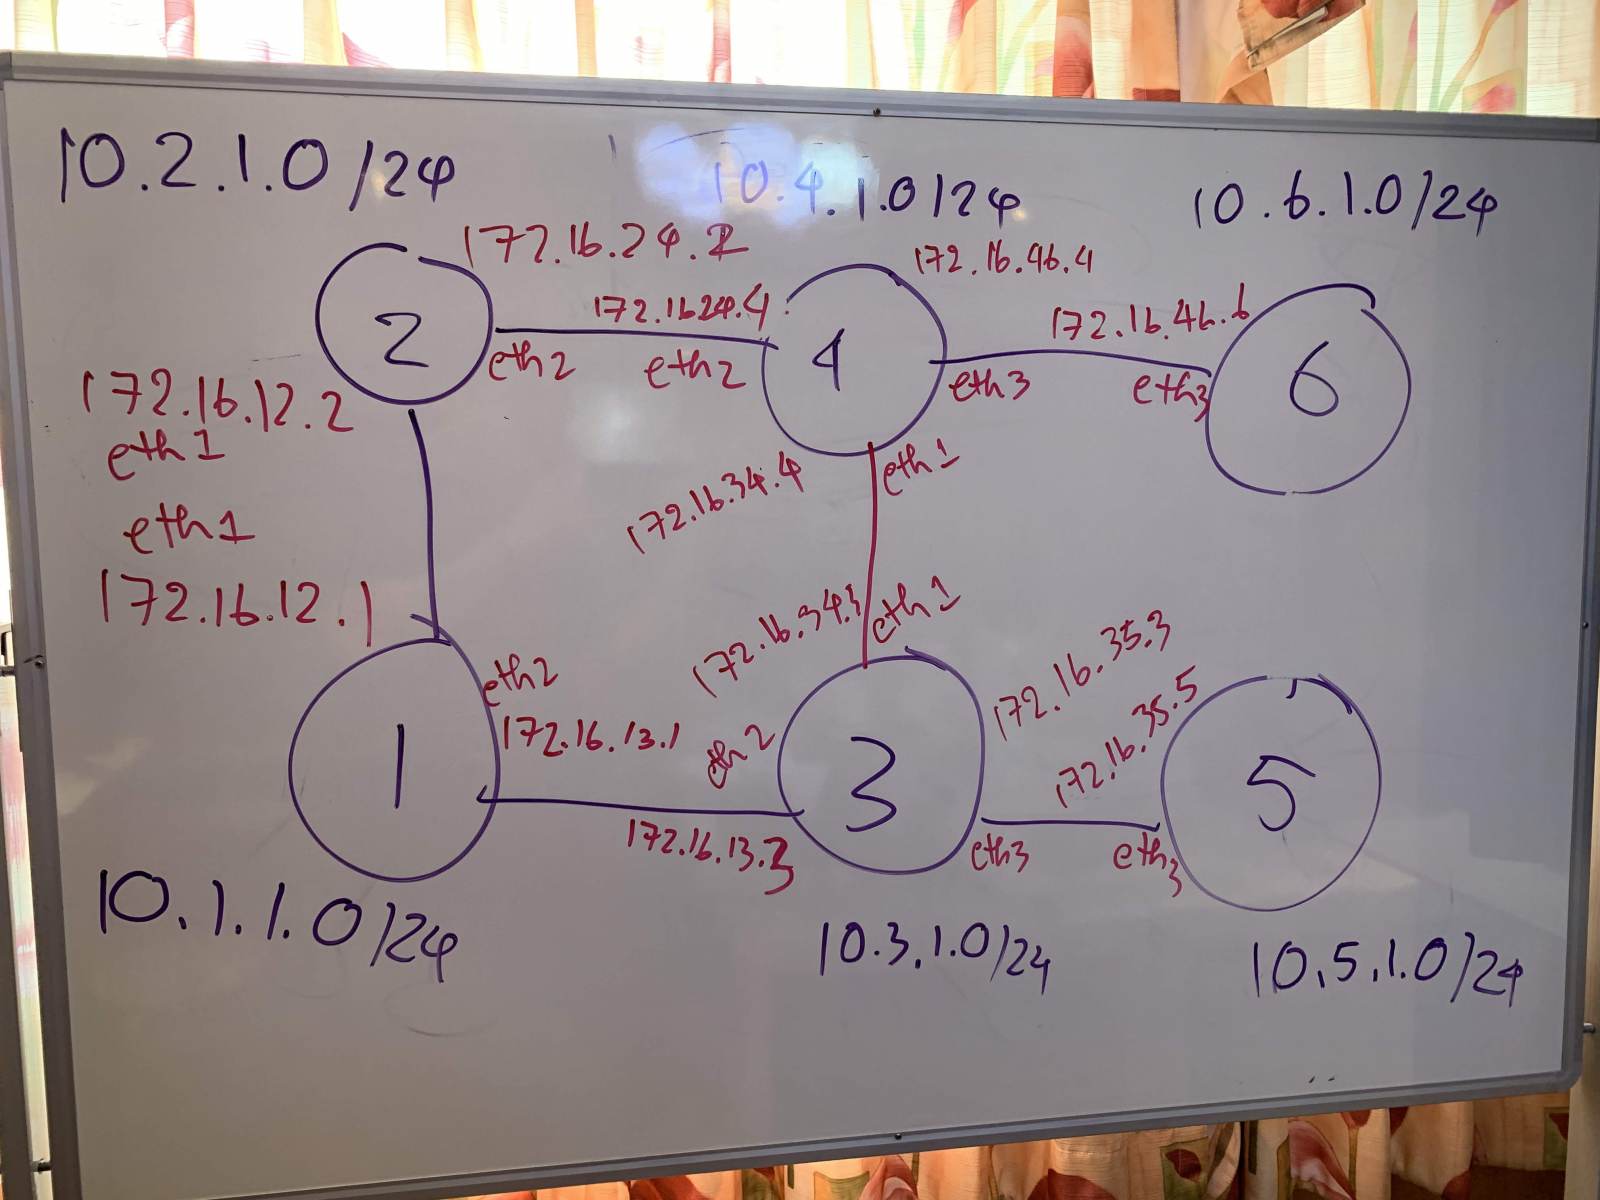 10.2.1.0/24
10.4.1.0/24
10.6.1.0/24
172.16.24.2
172.16.46.4
172.16.24.4
172.16.46.6
2
eth2
eth2
4
eth3
eth3
6
172.16.12.2
eth1
eth1
172.16.34.4
eth1
172.16.12.1
172.16.34.3
eth1
172.16.35.3
eth2
172.16.13.1
eth2
172.16.35.5
1
3
5
172.16.13.3
eth3
eth3
10.1.1.0/24
10.3.1.0/24
10.5.1.0/24